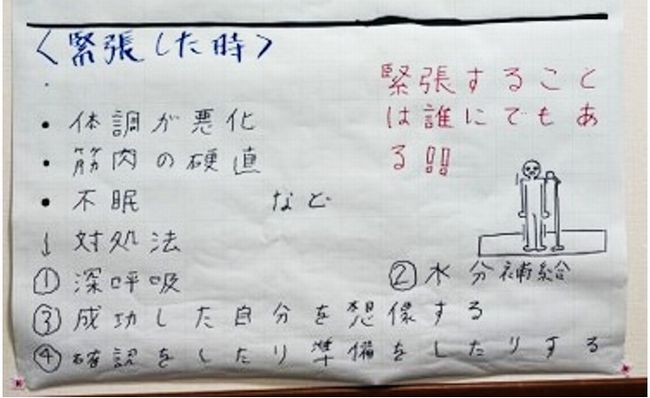 <緊張した時>
緊張すること
は誰にでもあ
る!!
・体調が悪化
・筋肉の硬直
・不眠 など
↓対処法
①深呼吸 ②水分補給
③成功した自分を想像する
④確認をしたり準備をしたりする